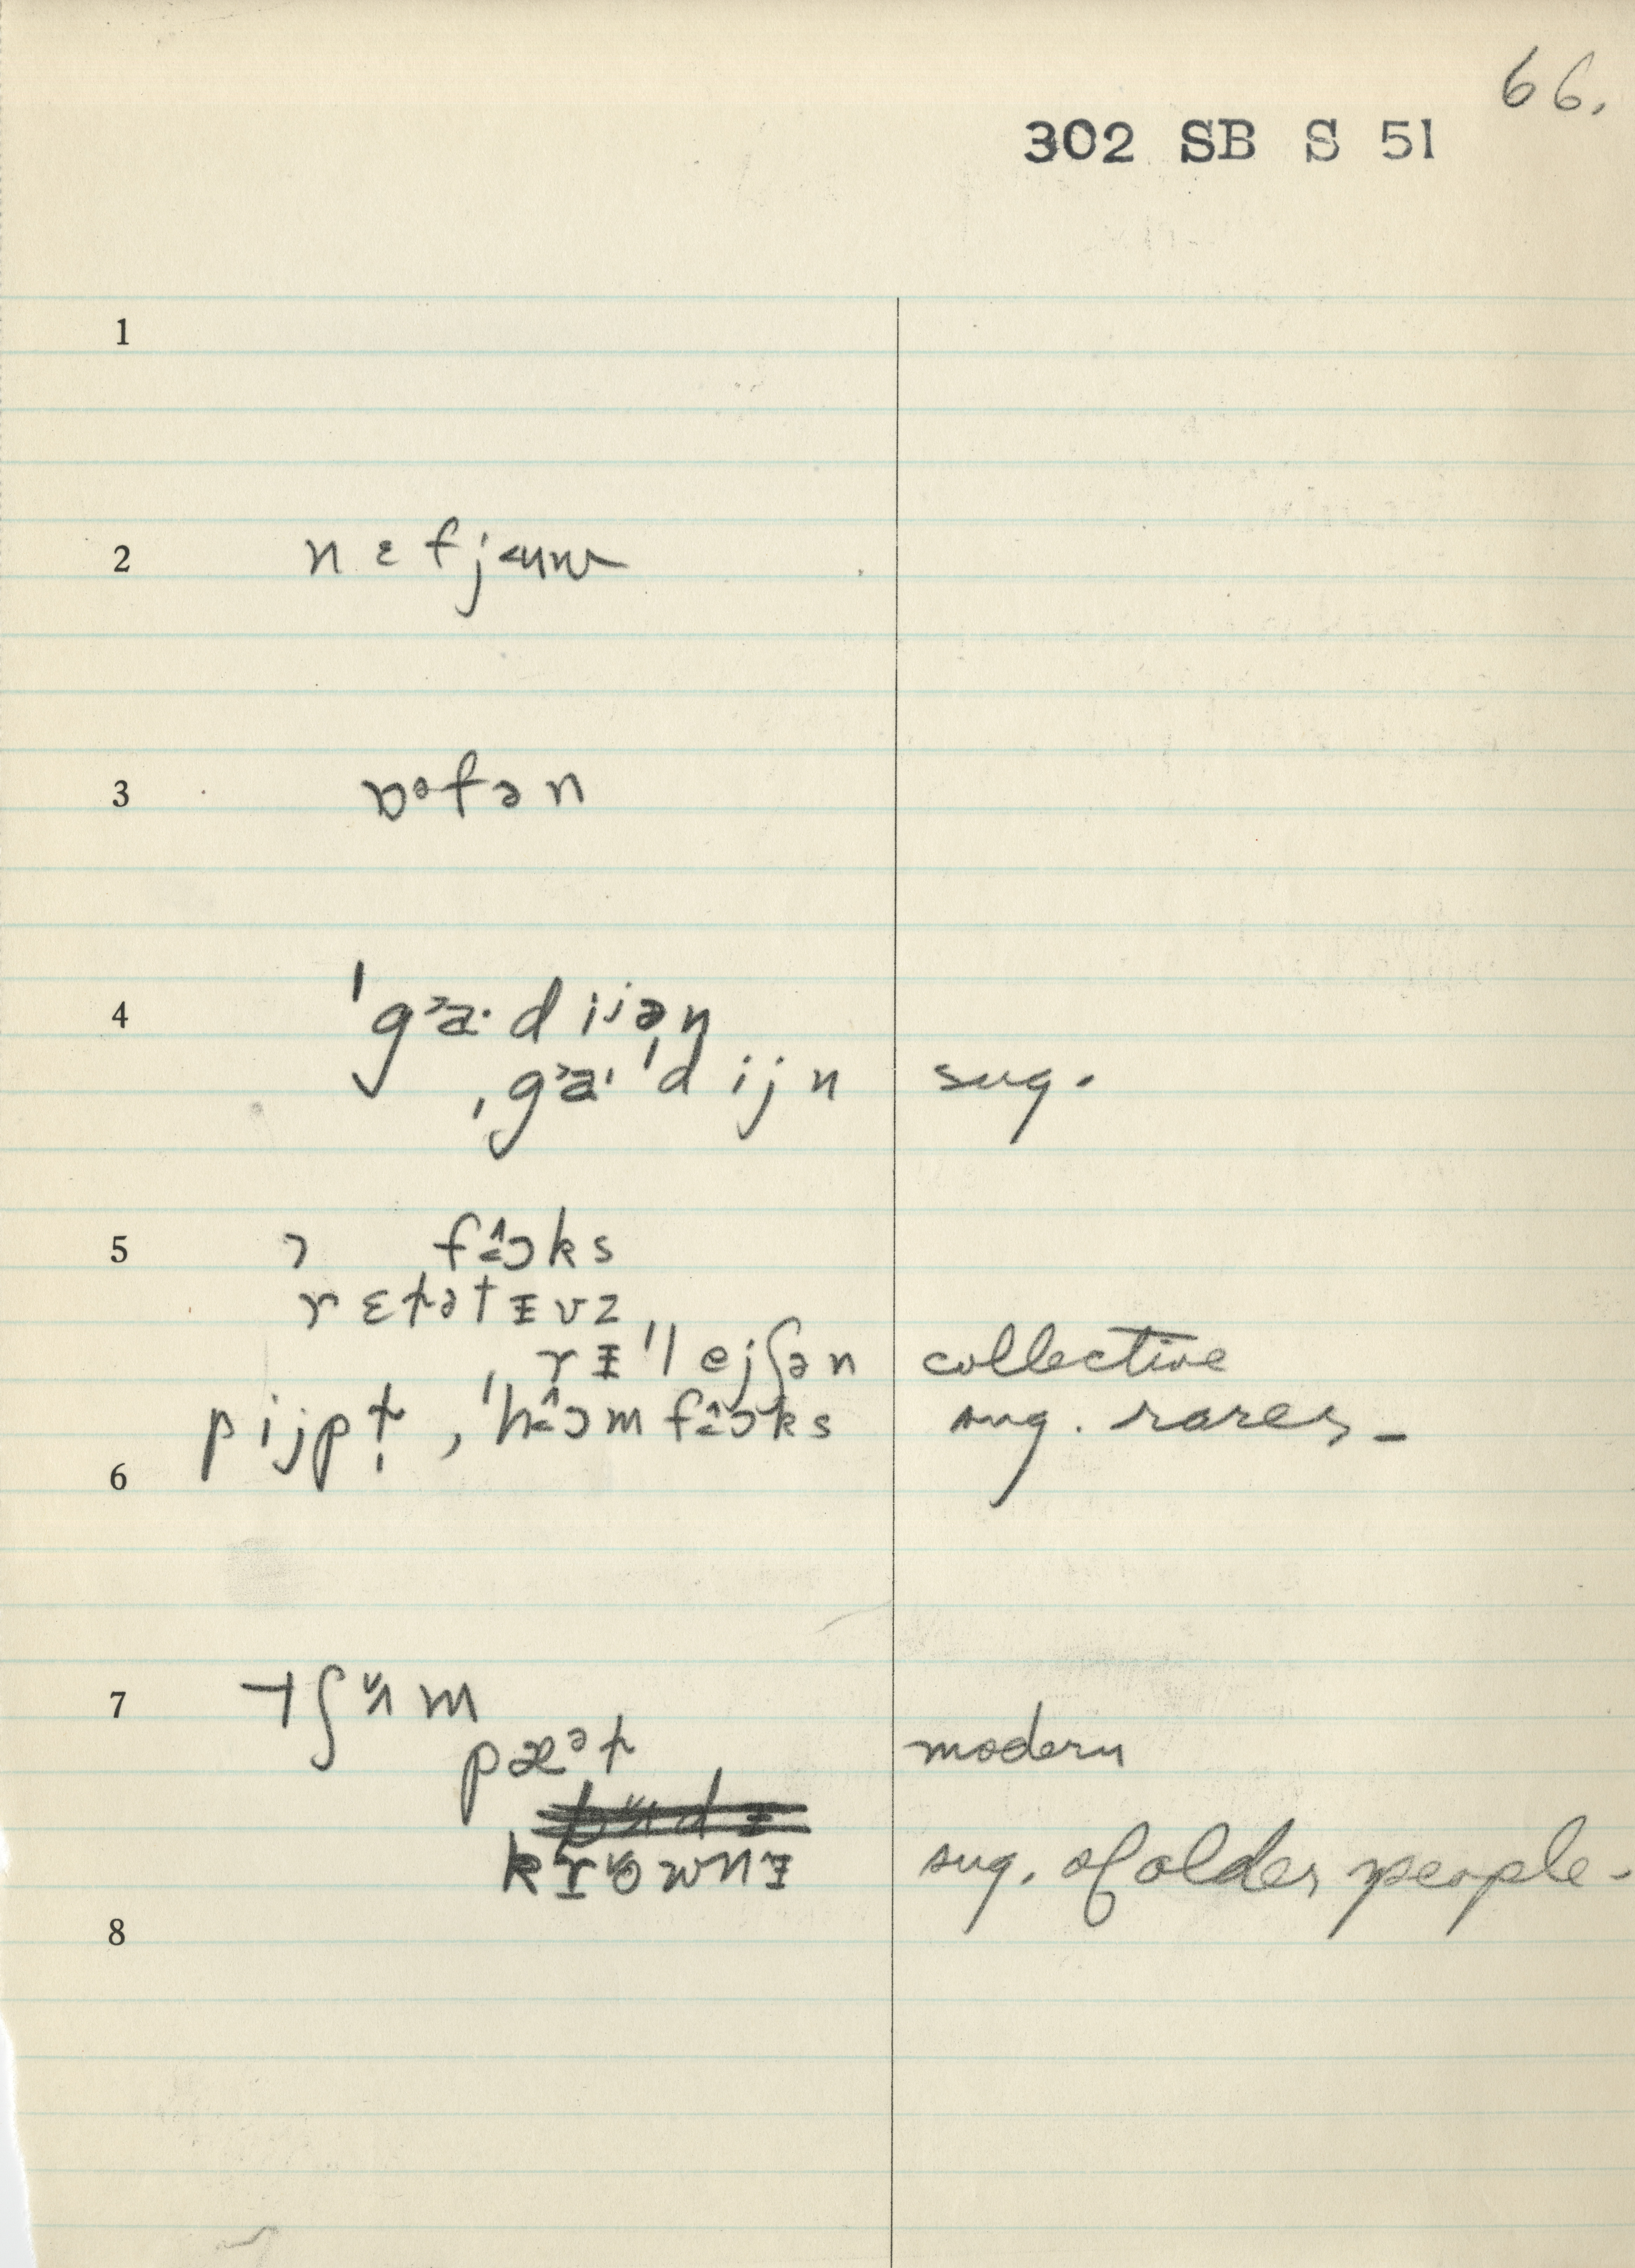 66.
302 SB S 51
1
2 nɛfjᵾuw
3 ɒᵊfən
4 ˈgᵊa·dijən
ˌgᵊa·ˈdijn sug.
5 ɔ fɔks
rɛɫətɪvz
ˌrɪˈlejʃən collective
pijpɫ̩, ˈhɔmfɔks sug. rarer –
6
7 tʃʌm
pæᵊɫ modern
krownɪ sug. of older people –
8